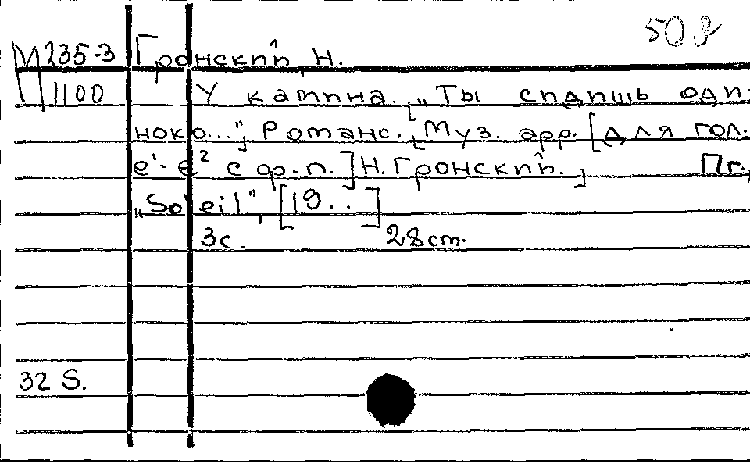 50 г
М 235-3 Гронский, Н.
1100 У камина. „Ты сидишь оди-
ноко..." Романс. [Муз. арр. [для гол.
e¹-e² с ф.-п.] Н. Гронский.] Пг.,
„Soleil", [19..]
3с. 28 cm.
32 S.